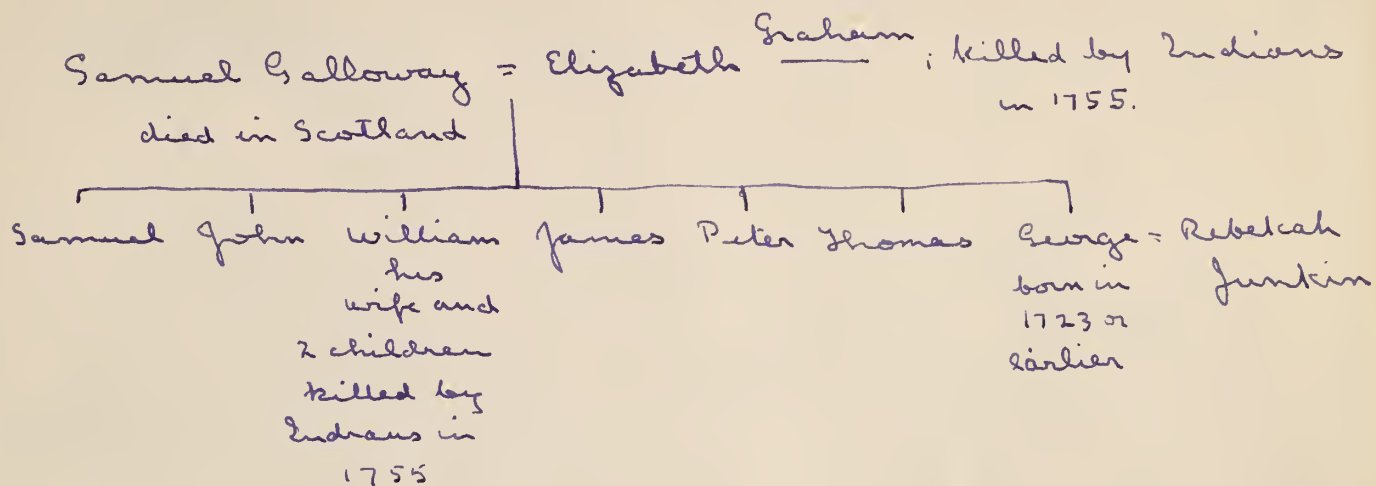 Samuel Galloway = Elizabeth Graham ; killed by Indians
died in Scotland
in 1755.
Samuel John William James Peter Thomas George = Rebekah
Junkin
his
wife and
2 children
killed by
Indians in
1755
born in
1723 or
earlier